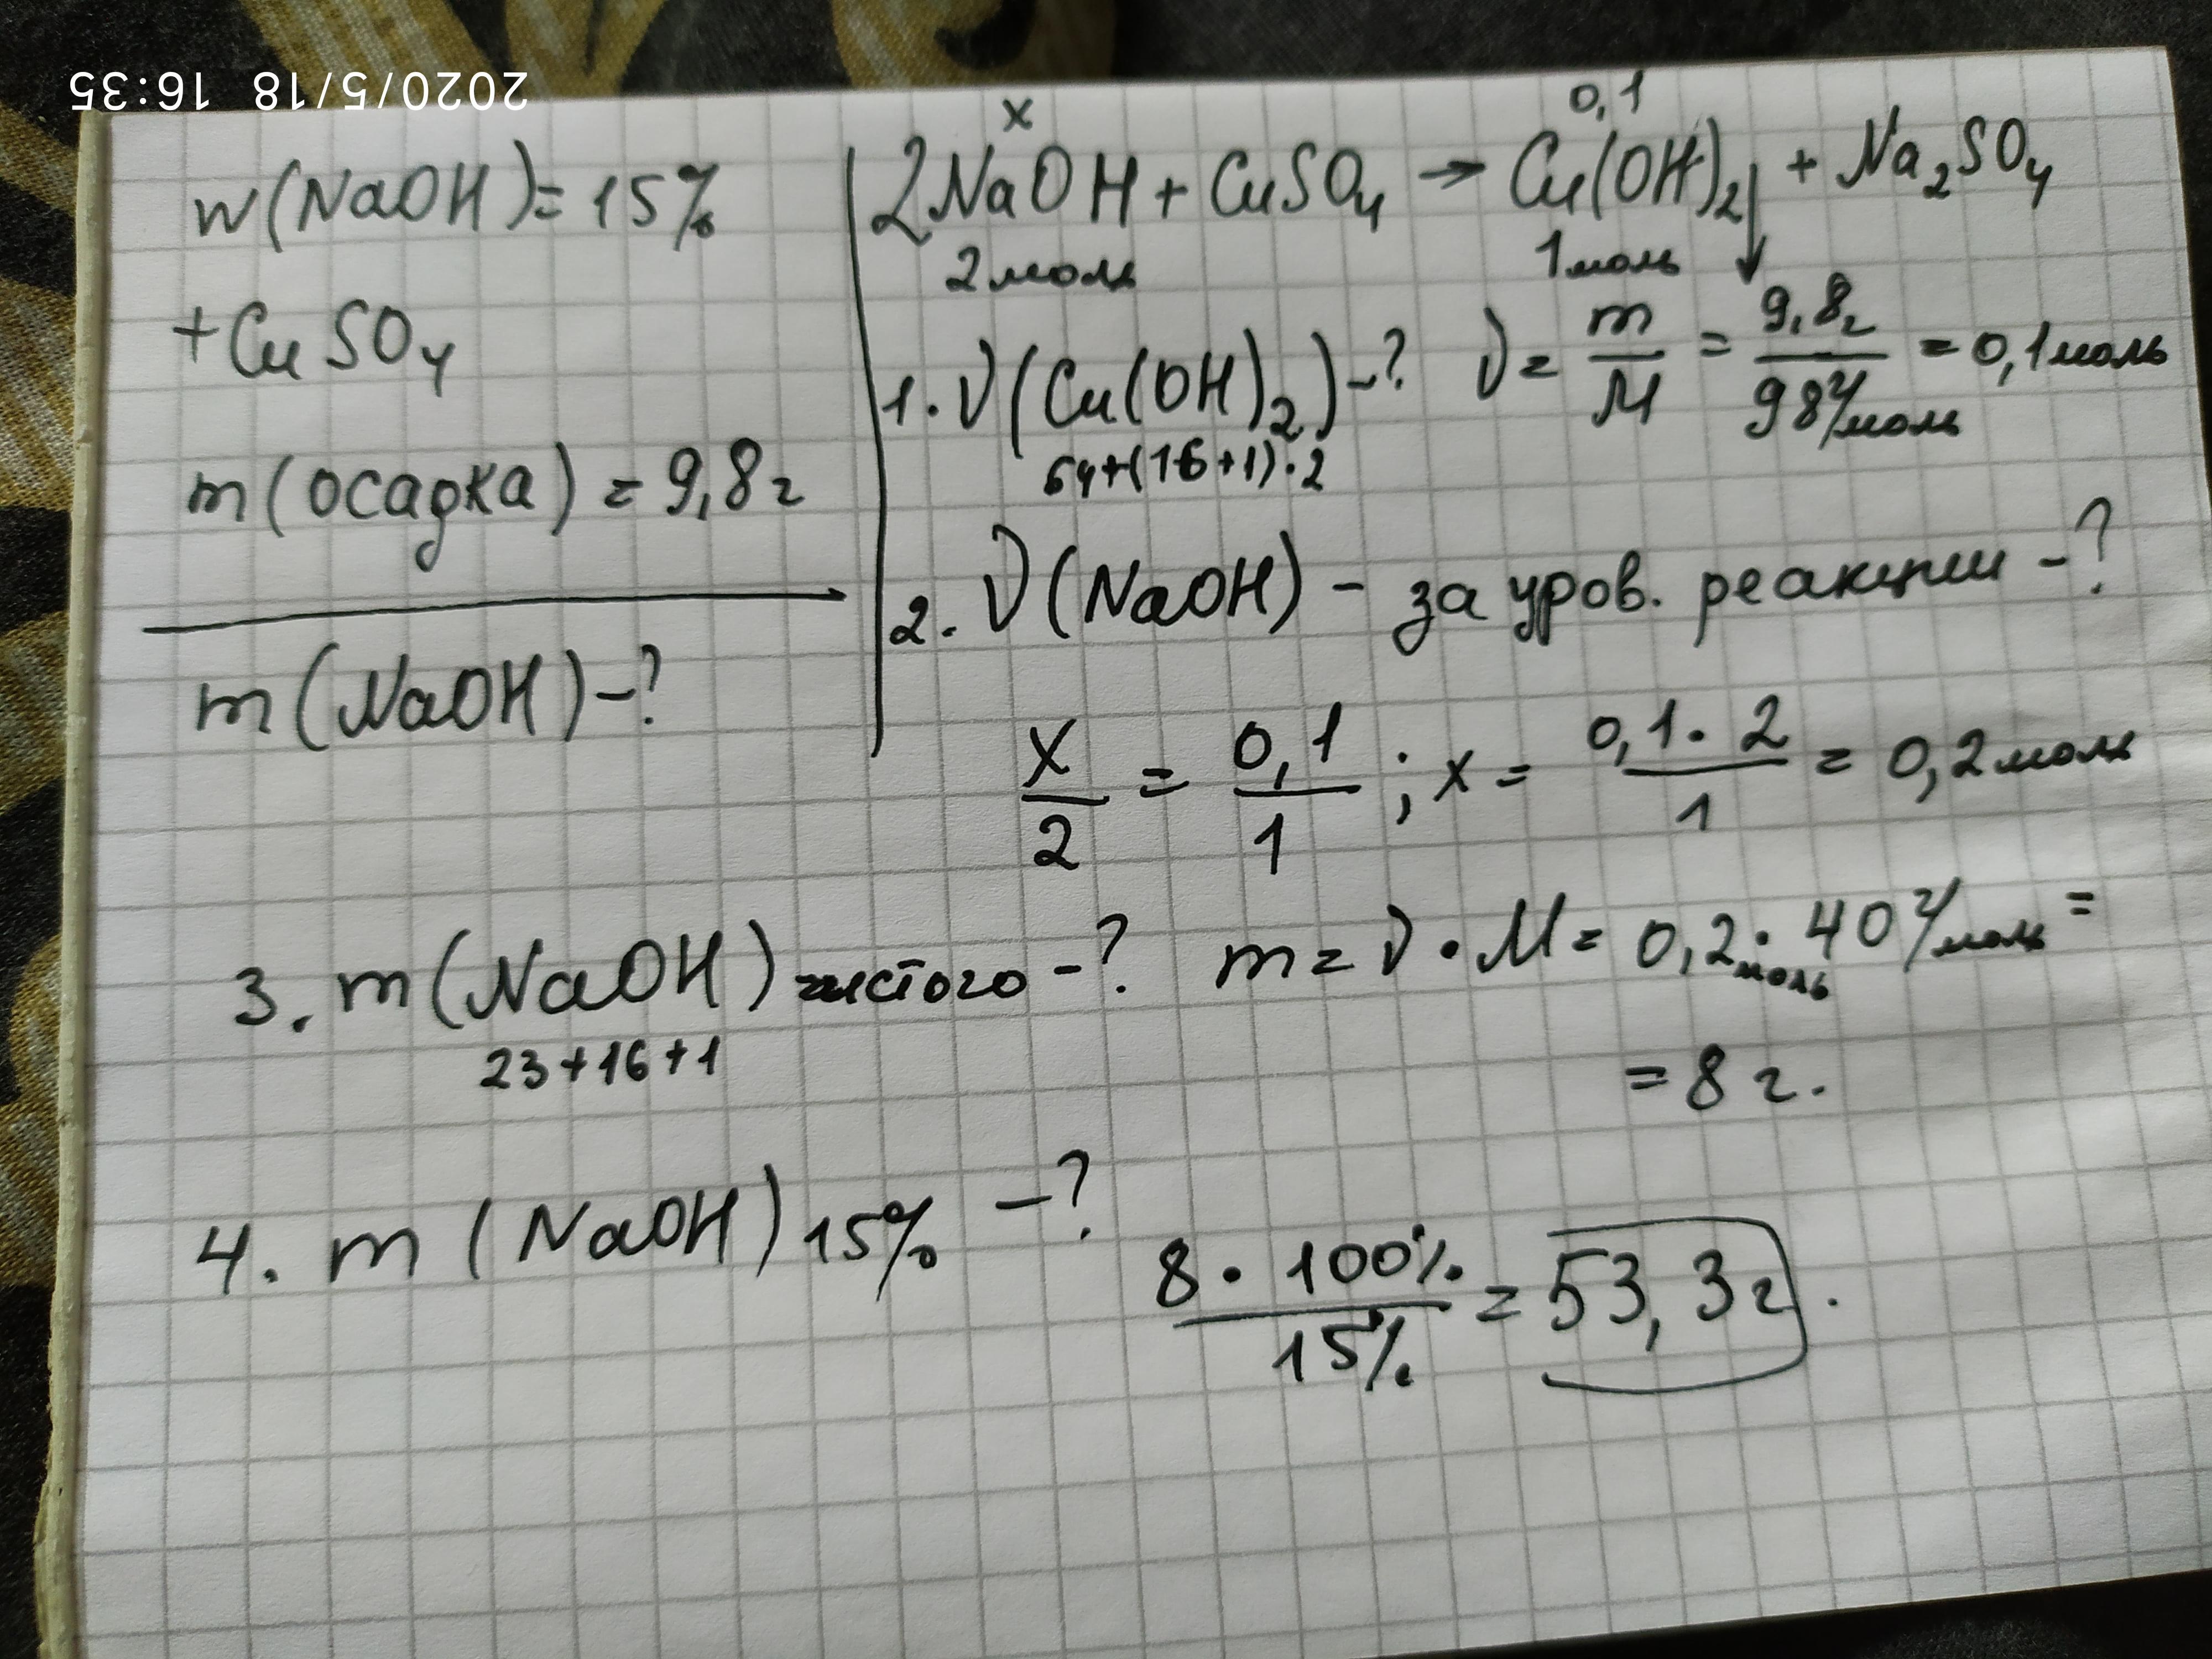 2020/5/18 16:35
w(NaOH)=15%
+CuSO₄
m(осадка)=9,8г
m(NaOH)-?
x 0,1
2NaOH+CuSO₄→Cu(OH)₂↓+Na₂SO₄
2моль 1моль
1. ν(Cu(OH)₂)-? ν=m/M=9,8г/98г/моль=0,1моль
64+(16+1)·2
2. ν(NaOH) - за уров. реакции -?
x/2=0,1/1; x=0,1·2/1=0,2моль
3. m(NaOH)чистого-? m=ν·M=0,2моль·40г/моль=
23+16+1
=8г.
4. m(NaOH)15% -?
8·100%/15%=53,3г.